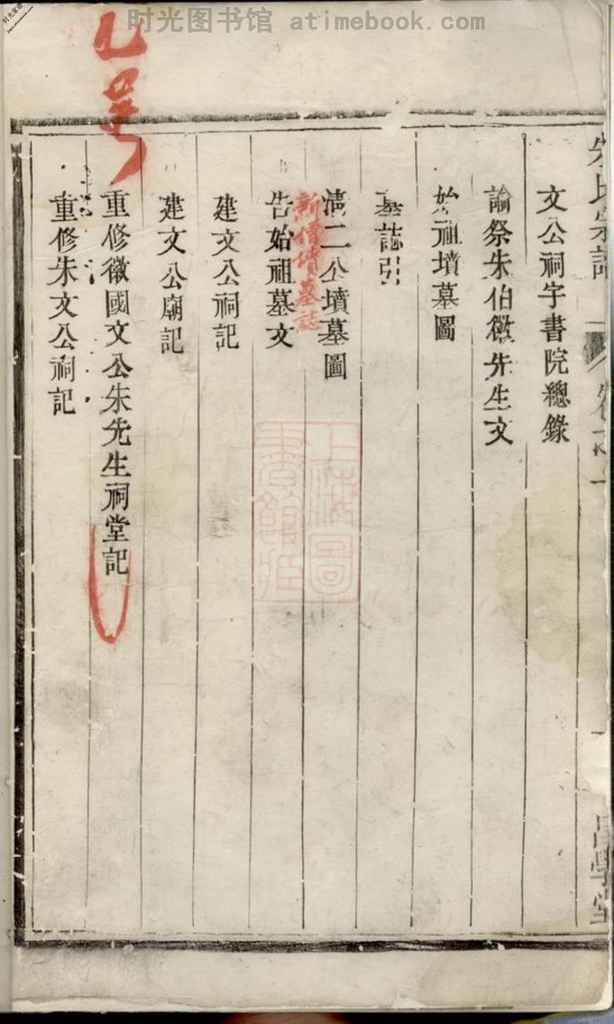 时光图书馆 atimebook.com
文公祠宇書院總錄
諭祭朱伯徵先生文
始祖墳墓圖
墓誌引
満二公墳墓圖
新增墳墓誌
告始祖墓文
建文公祠記
建文公廟記
重修徽國文公朱先生祠堂記
重修朱文公祠記